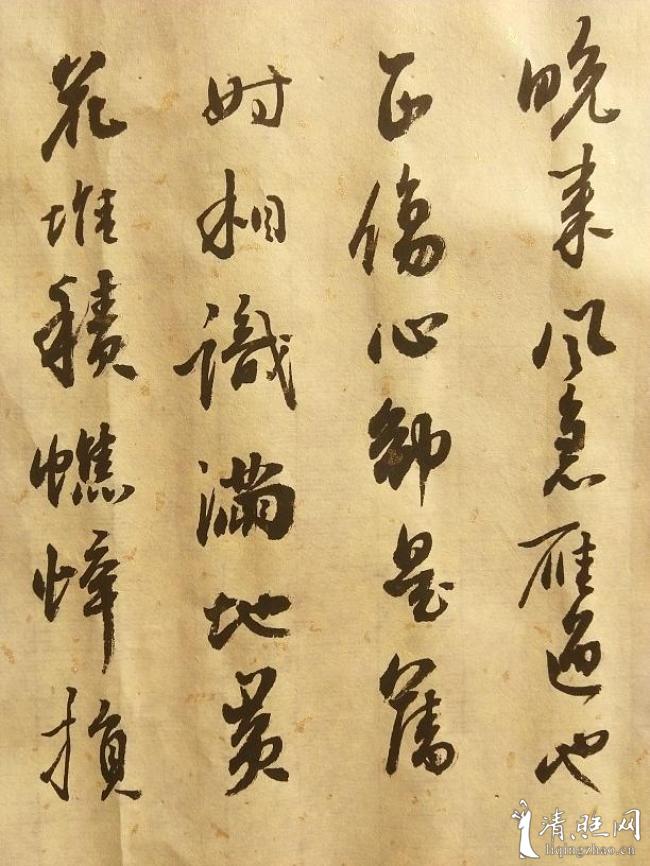 晚来风急雁过也
正傷心卻是舊
时相識滿地黄
花堆積憔悴損
清旺网
liqingzhao.cn